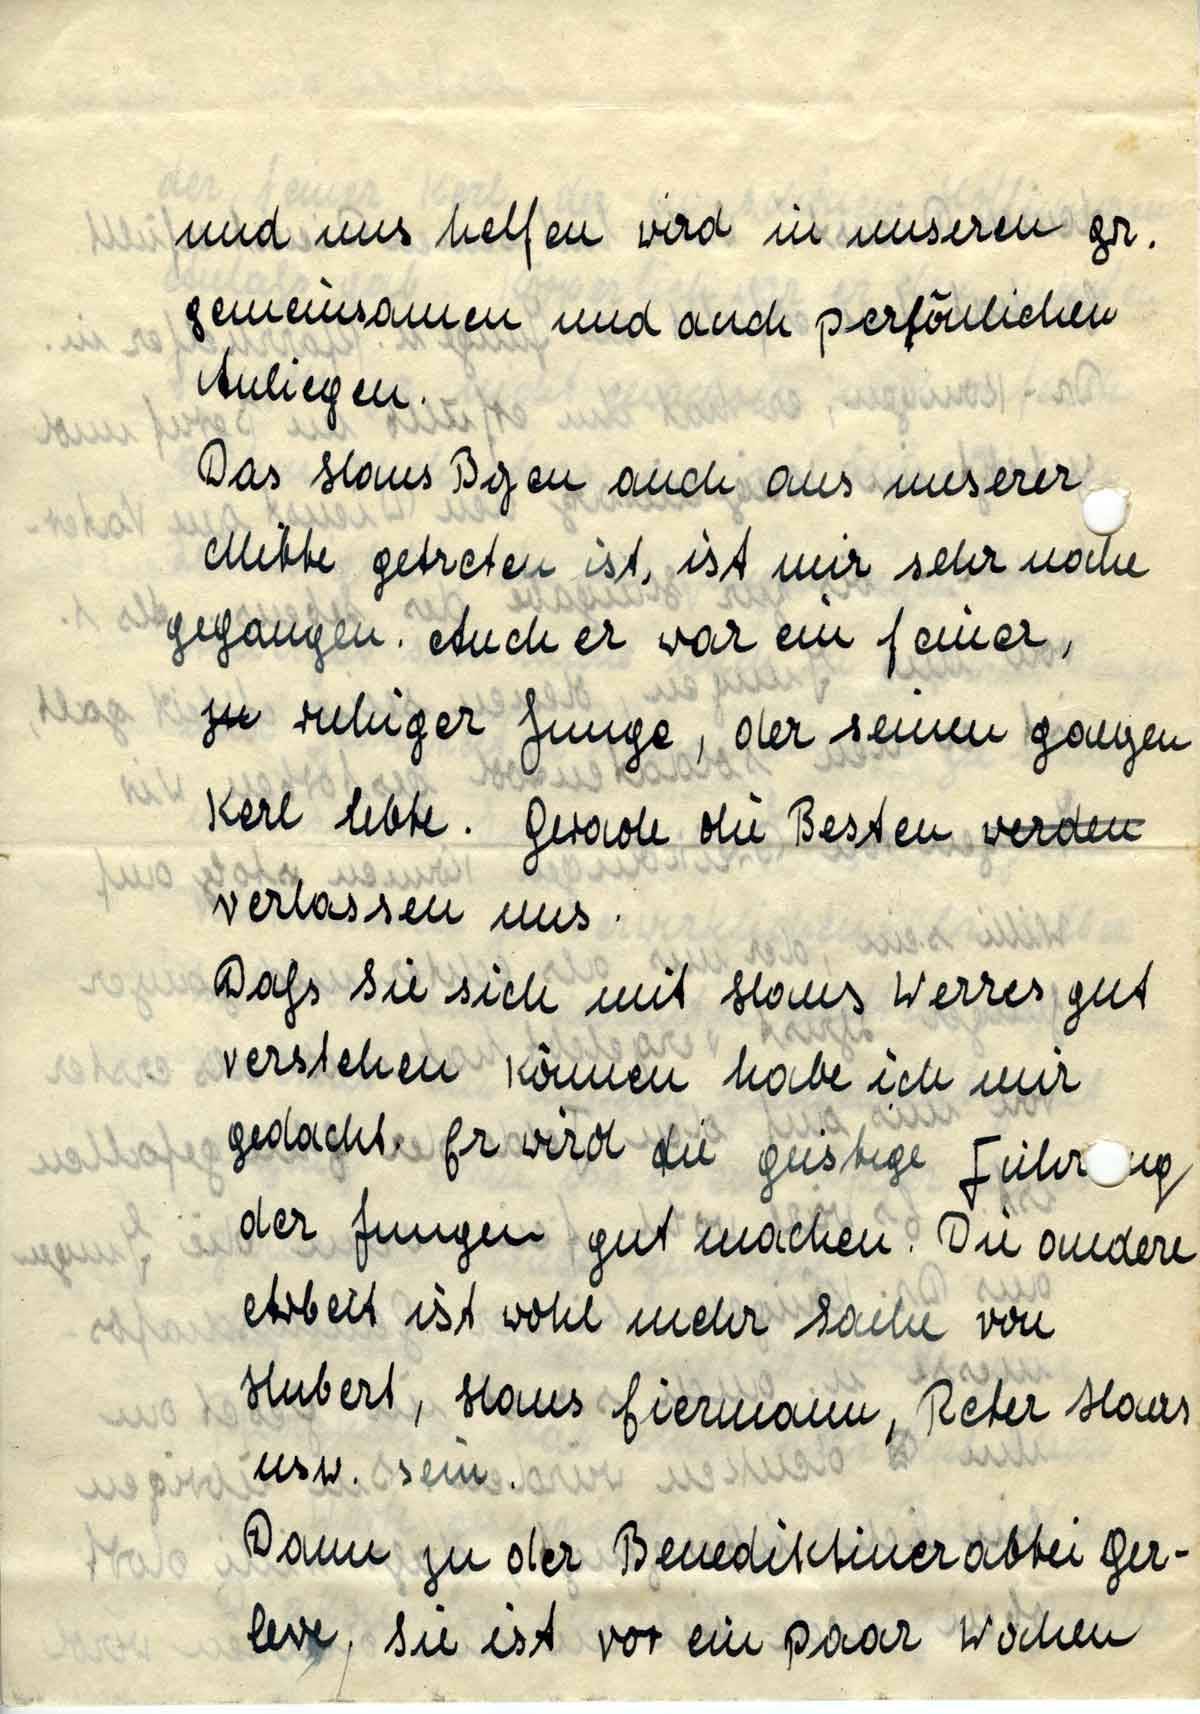 und uns helfen wird in unseren gr.
gemeinsamen und auch persönlichen
Anliegen.
Das Hans Bgen auch aus unserer
Mitte getreten ist, ist mir sehr nahe
gegangen. Auch er war ein feiner,
zu ruhiger Junge, der seinen ganzen
Kerl lebte. Gerade die Besten werden
verlassen uns.
Dafs Sie sich mit Hans Werres gut
verstehen können habe ich mir
gedacht. Er wird die geistige Führung
der Jungen gut machen. Die andere
Arbeit ist wohl mehr Sache von
Hubert, Hans Eiermann, Peter Haas
usw. sein.
Dann zu der Benediktinerabtei Ger-
leve, Sie ist vor ein paar Wochen